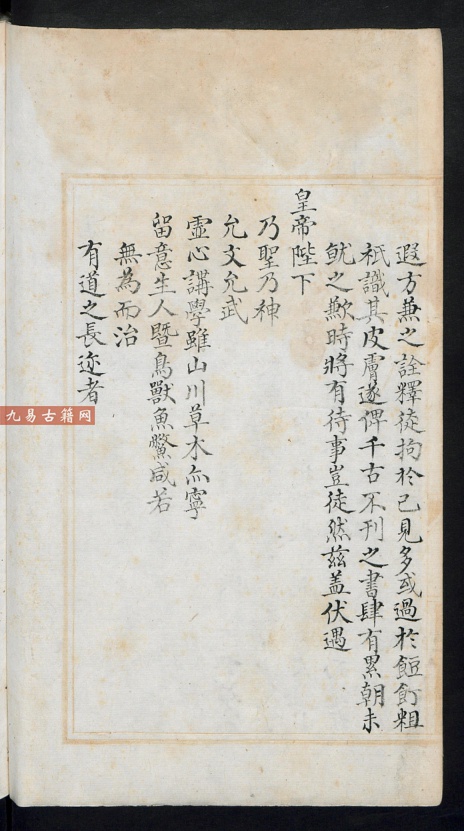 遐方兼之詮釋徒拘於己見多或過於飣餖粗
祇識其皮膚遂俾千古不刊之書肆有累朝未
觖之歎時將有待事豈徒然茲盖伏遇
皇帝陛下
乃聖乃神
允文允武
霊心講學雖山川草木亦寧
留意生人暨鳥獸魚鱉咸若
無為而治
有道之長迩者
九易古籍网